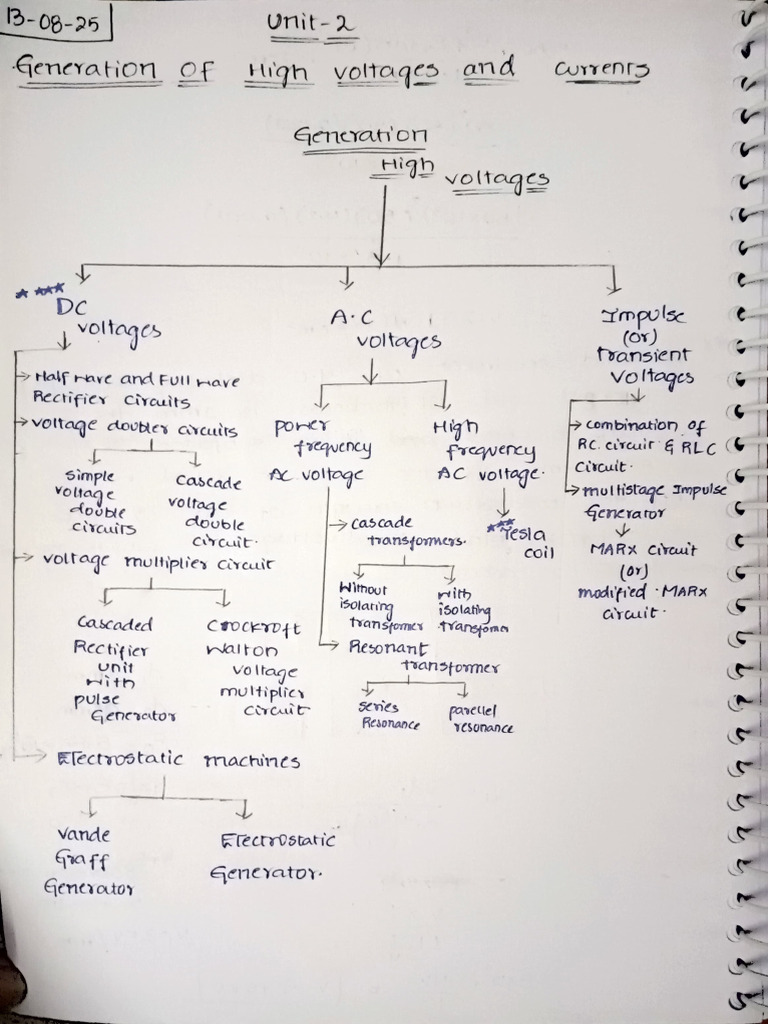 13-08-25
Unit-2
Generation Of High voltages and currents
Generation
High
voltages
DC
voltages
Half wave and Full wave
Rectifier circuits
voltage doubler circuits
simple
voltage
double
circuits
cascade
voltage
double
circuit.
voltage multiplier circuit
cascaded
Rectifier
unit
with
pulse
Generator
crockroft
walton
voltage
multiplier
circuit
Electrostatic machines
vande
Graff
Generator
Electrostatic
Generator.
A.C
voltages
power
frequency
AC voltage
High
frequency
AC voltage.
cascade
transformers.
Without
isolating
transformer
with
isolating
transfomer
Resonant
transformer
series
Resonance
parellel
resonance
Tesla
coil
Impulse
(or)
transient
voltages
combination of
RC circuit & RLC
circuit.
multistage Impulse
Generator
MARX circuit
(or)
modified MARX
circuit.